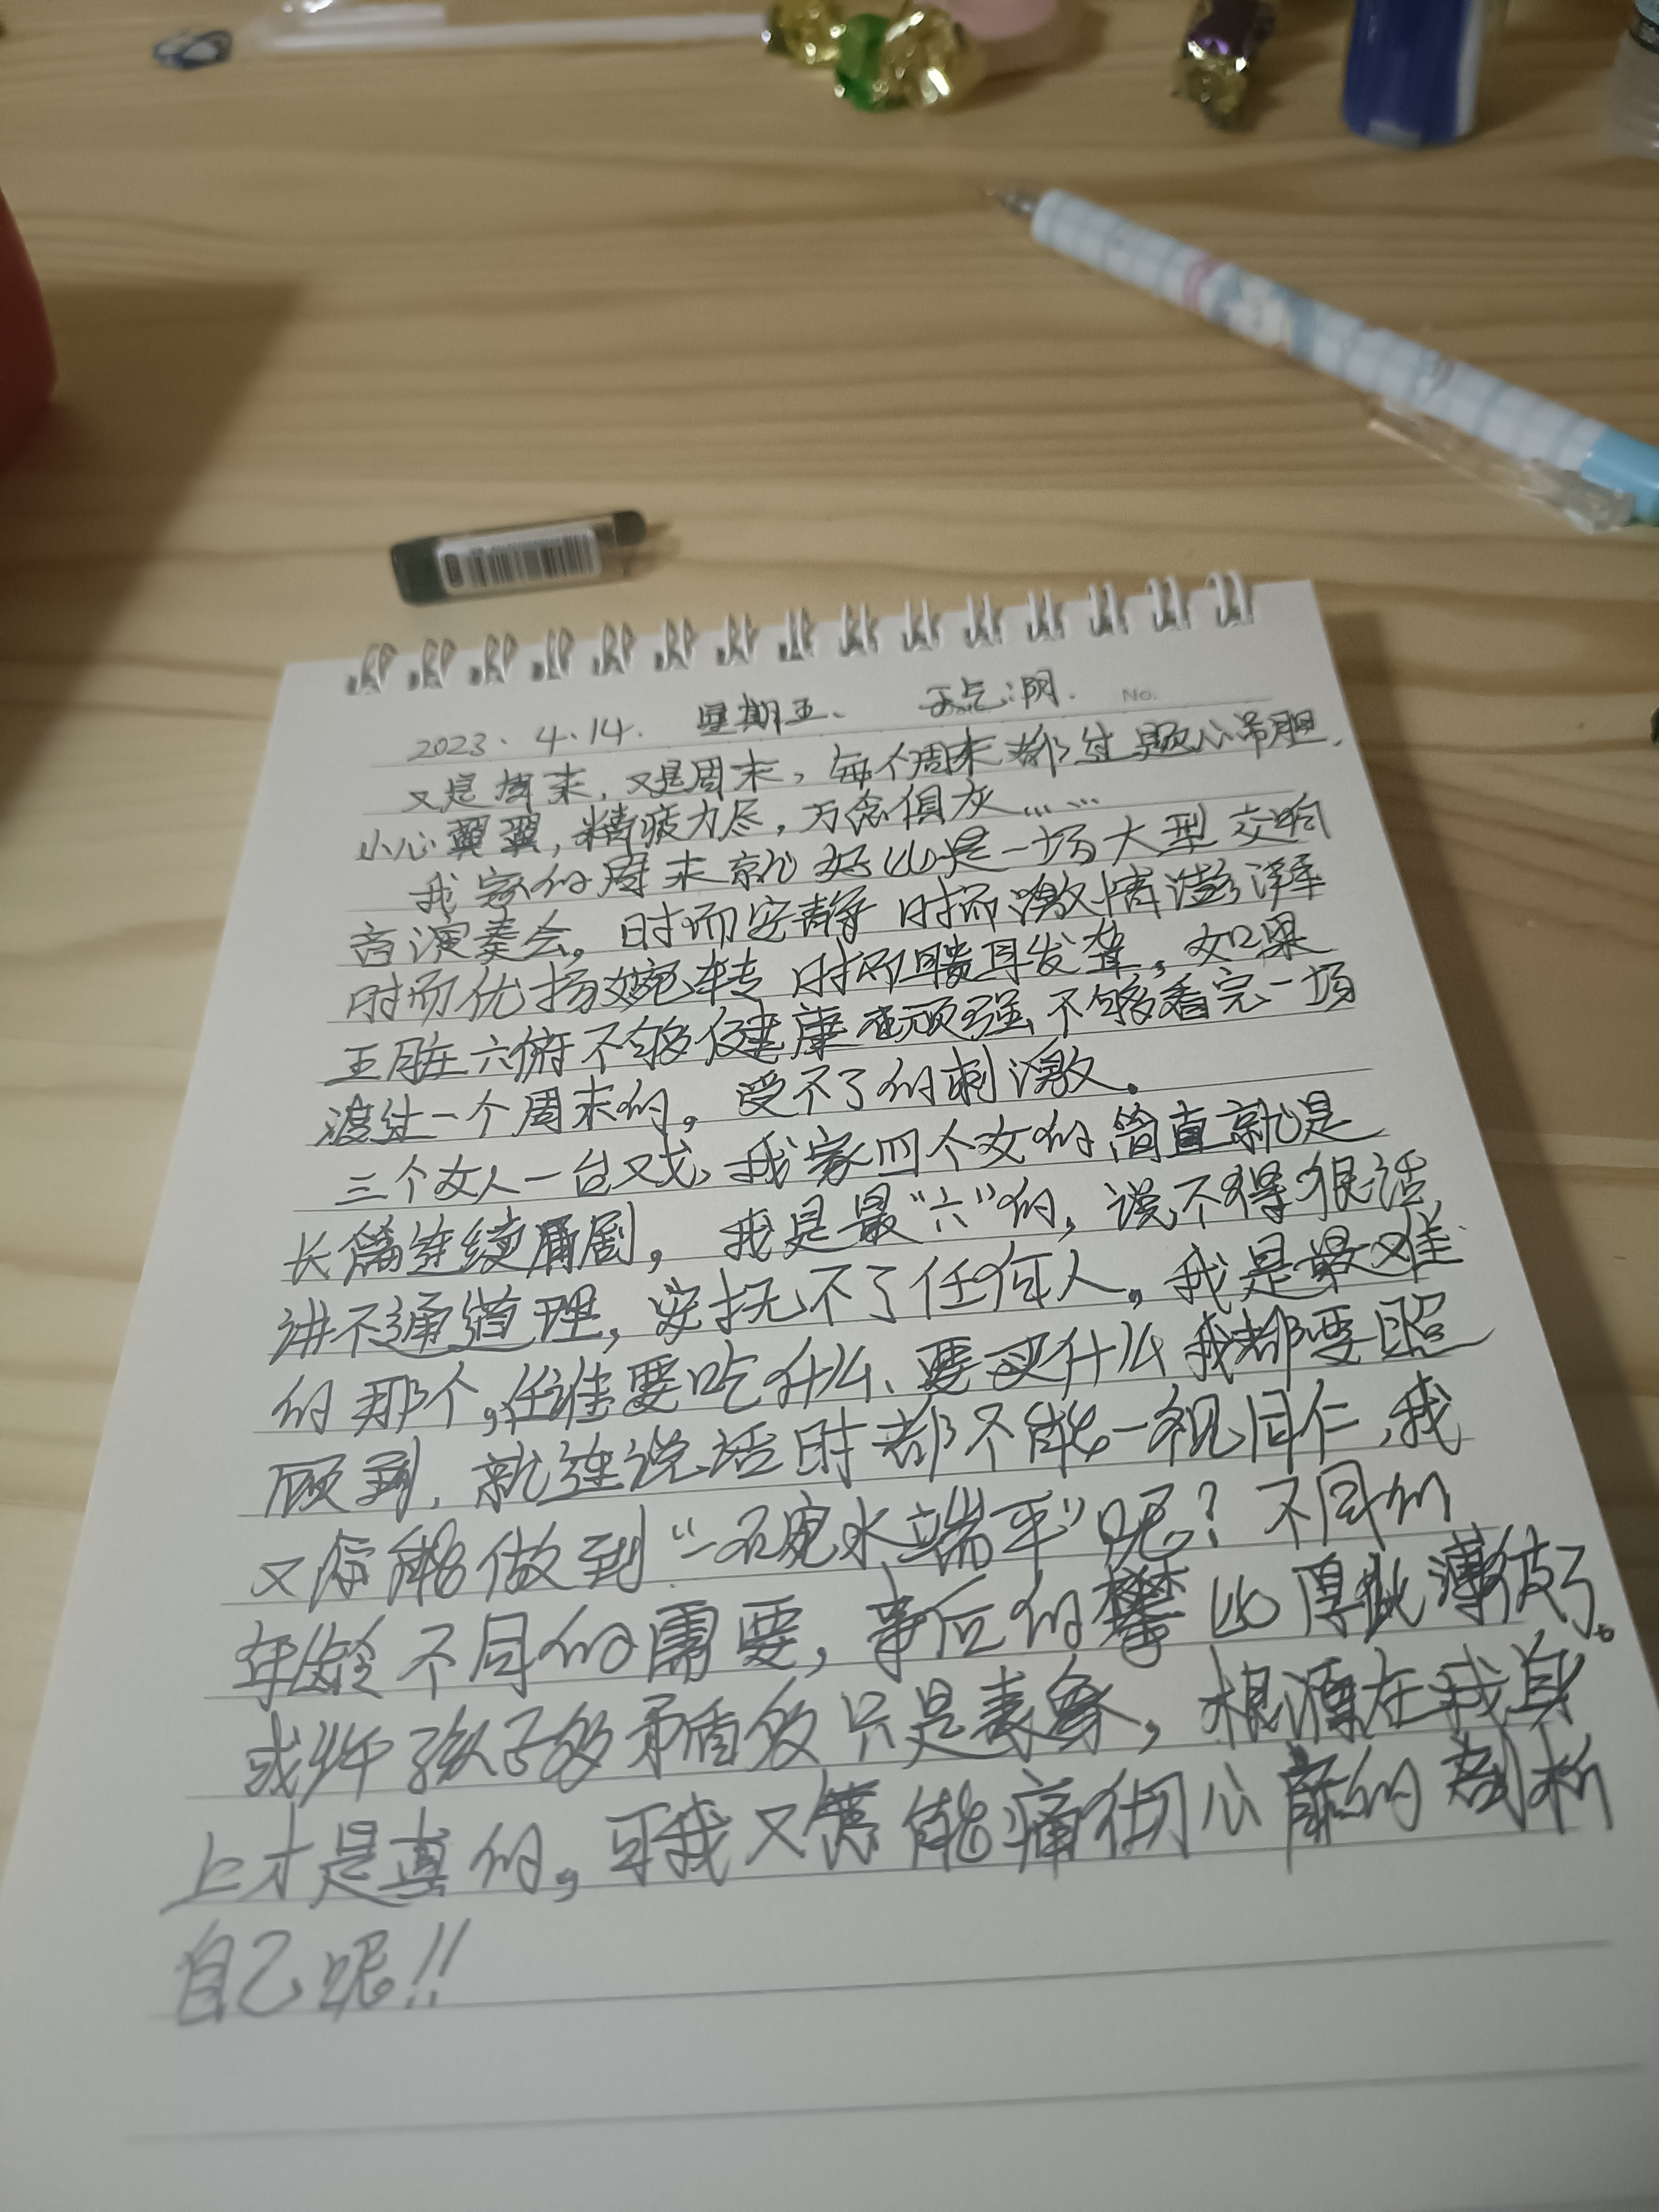 2023.4.14. 星期五、 天气:阴. No.
又是周末,又是周末,每个周末都过题心吊胆.
小心翼翼,精疲力尽,万念俱灰……
我家的周末就好比是一场大型交响
音演奏会。时而安静 时而激情澎湃
时而优扬婉转 时而聩耳发聋,如果
五脏六俯不够健康 顽强 不够看完一场
渡过一个周末的,受不了的刺激。
三个女人一台戏、我家四个女的简直就是
长篇连续剧,我是最“六”的,说不得狠话,
讲不通道理,安抚不了任何人,我是最难
的那个,任谁要吃什么、要买什么我都要照
顾到,就连说话时都不能一视同仁,我
又怎能做到“一碗水端平”呢?不同的
年龄不同的需要,事后的攀比厚此薄彼了。
或许孩子多矛盾多只是表象,根源在我身
上才是真的,可我又怎能痛彻心扉的剖析
自己呢!!